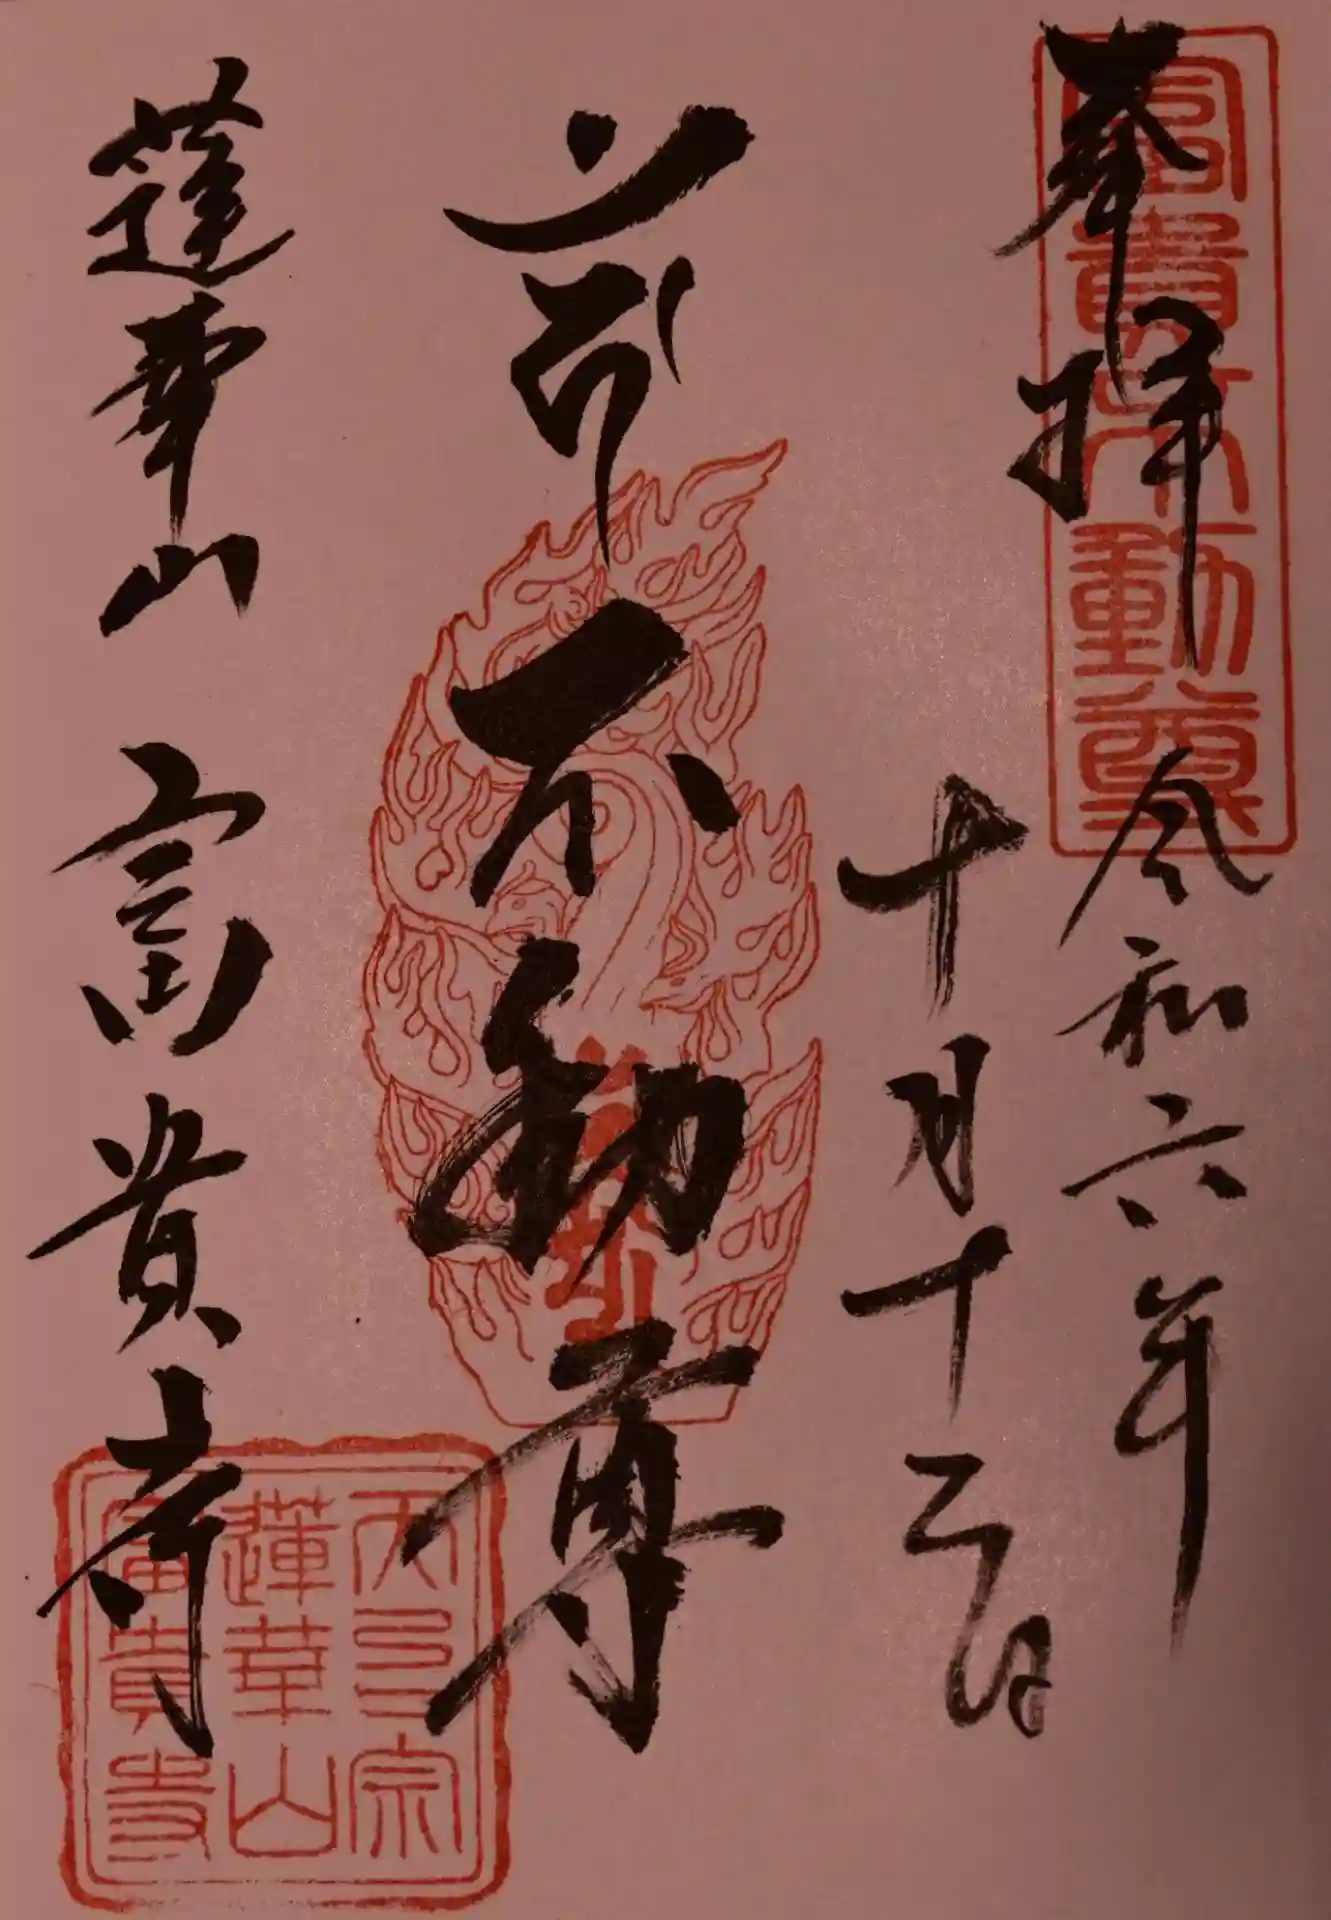 奉拝
富貴不動尊
令和六年
十月十三日
不動尊
蓮華山 富貴寺
天台宗
蓮華山
富貴寺